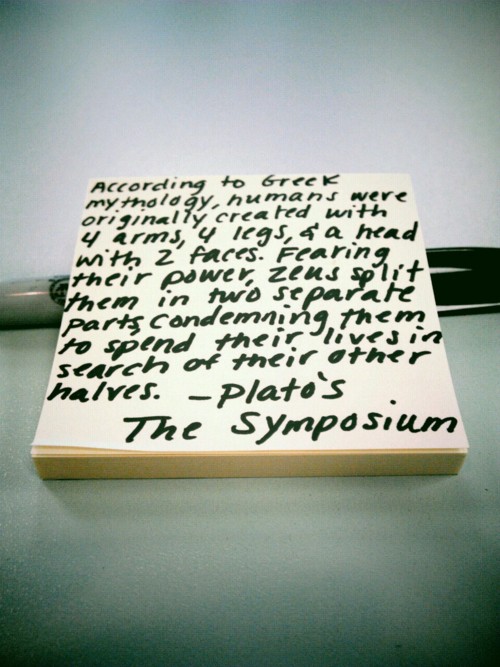 According to Greek
mythology, humans were
originally created with
4 arms, 4 legs, & a head
with 2 faces. Fearing
their power, Zeus split
them in two separate
parts, condemning them
to spend their lives in
search of their other
halves. - Plato's
The Symposium